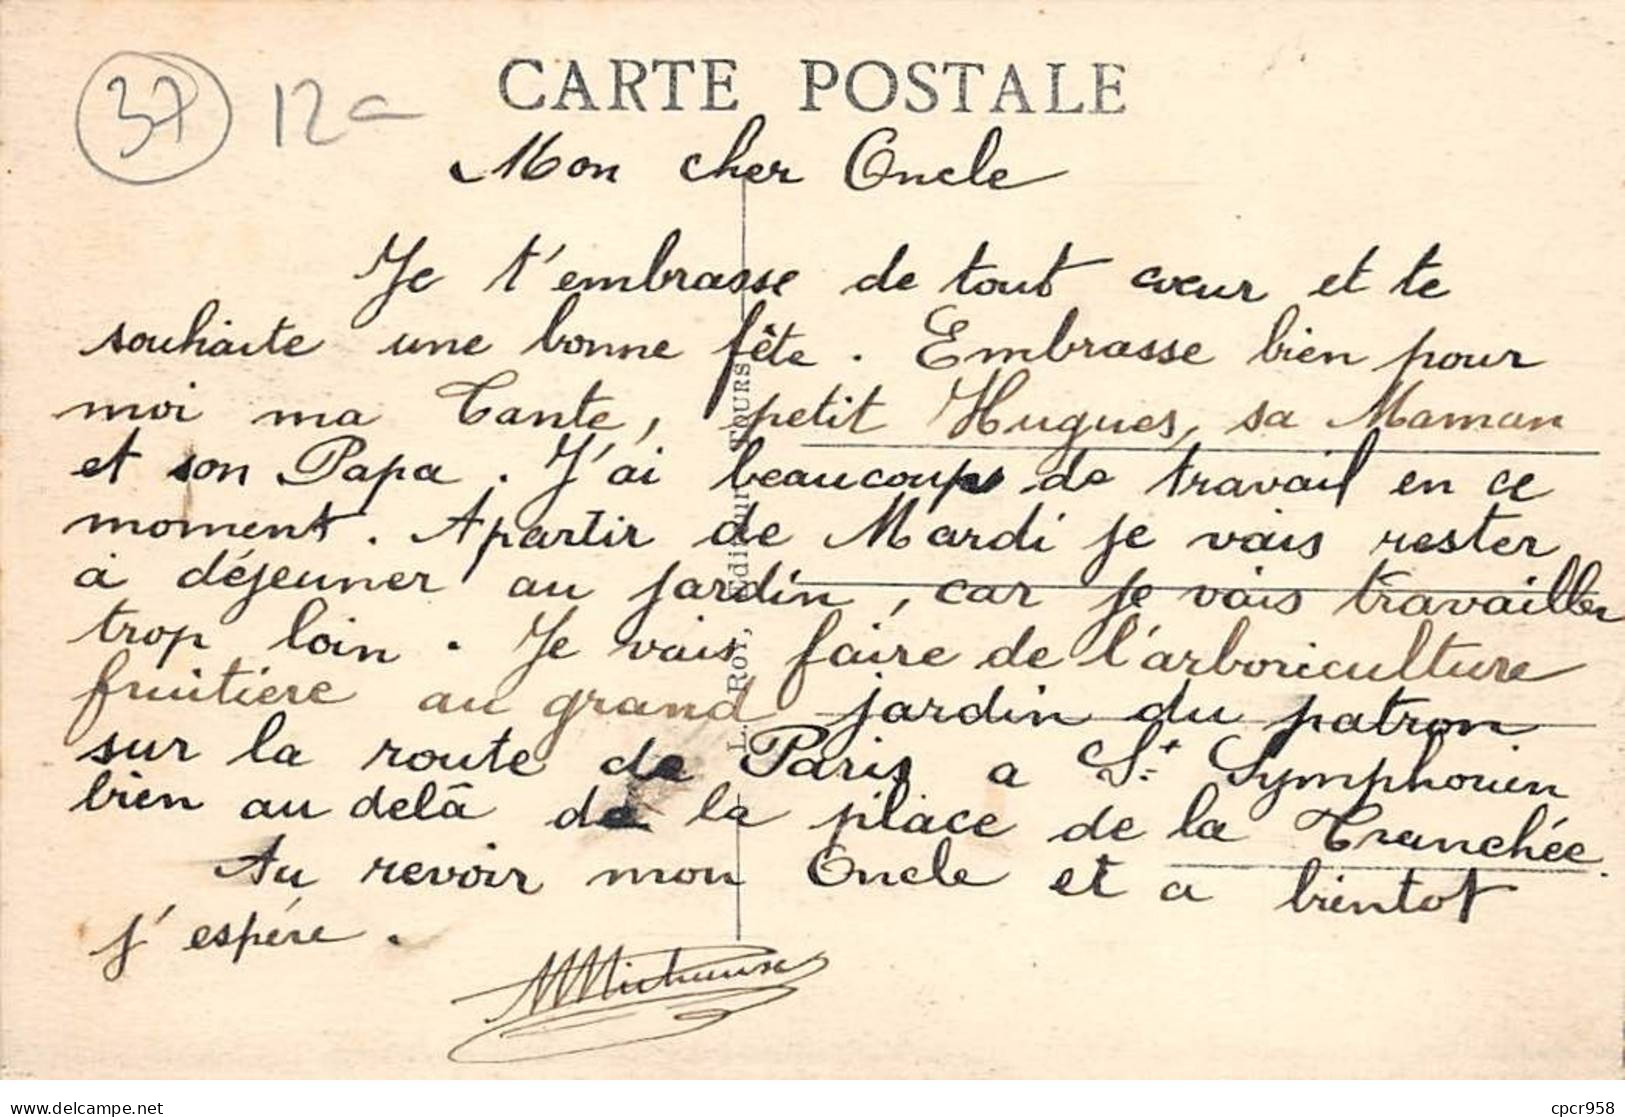 37 12
CARTE POSTALE
Mon cher Oncle
Je t'embrasse de tout cœur et te
souhaite une bonne fête. Embrasse bien pour
moi ma Tante, petit Hugues, sa Maman
et son Papa. J'ai beaucoup de travail en ce
moment. A partir de Mardi je vais rester
à déjeuner au jardin, car je vais travailler
trop loin. Je vais faire de l'arboriculture
fruitière au grand jardin du patron
sur la route de Paris a St Symphorien
bien au delà de la place de la Tranchée.
Au revoir mon Oncle et a bientot
j'espère.
L. Roi, Editeur TOURS
cpcr958